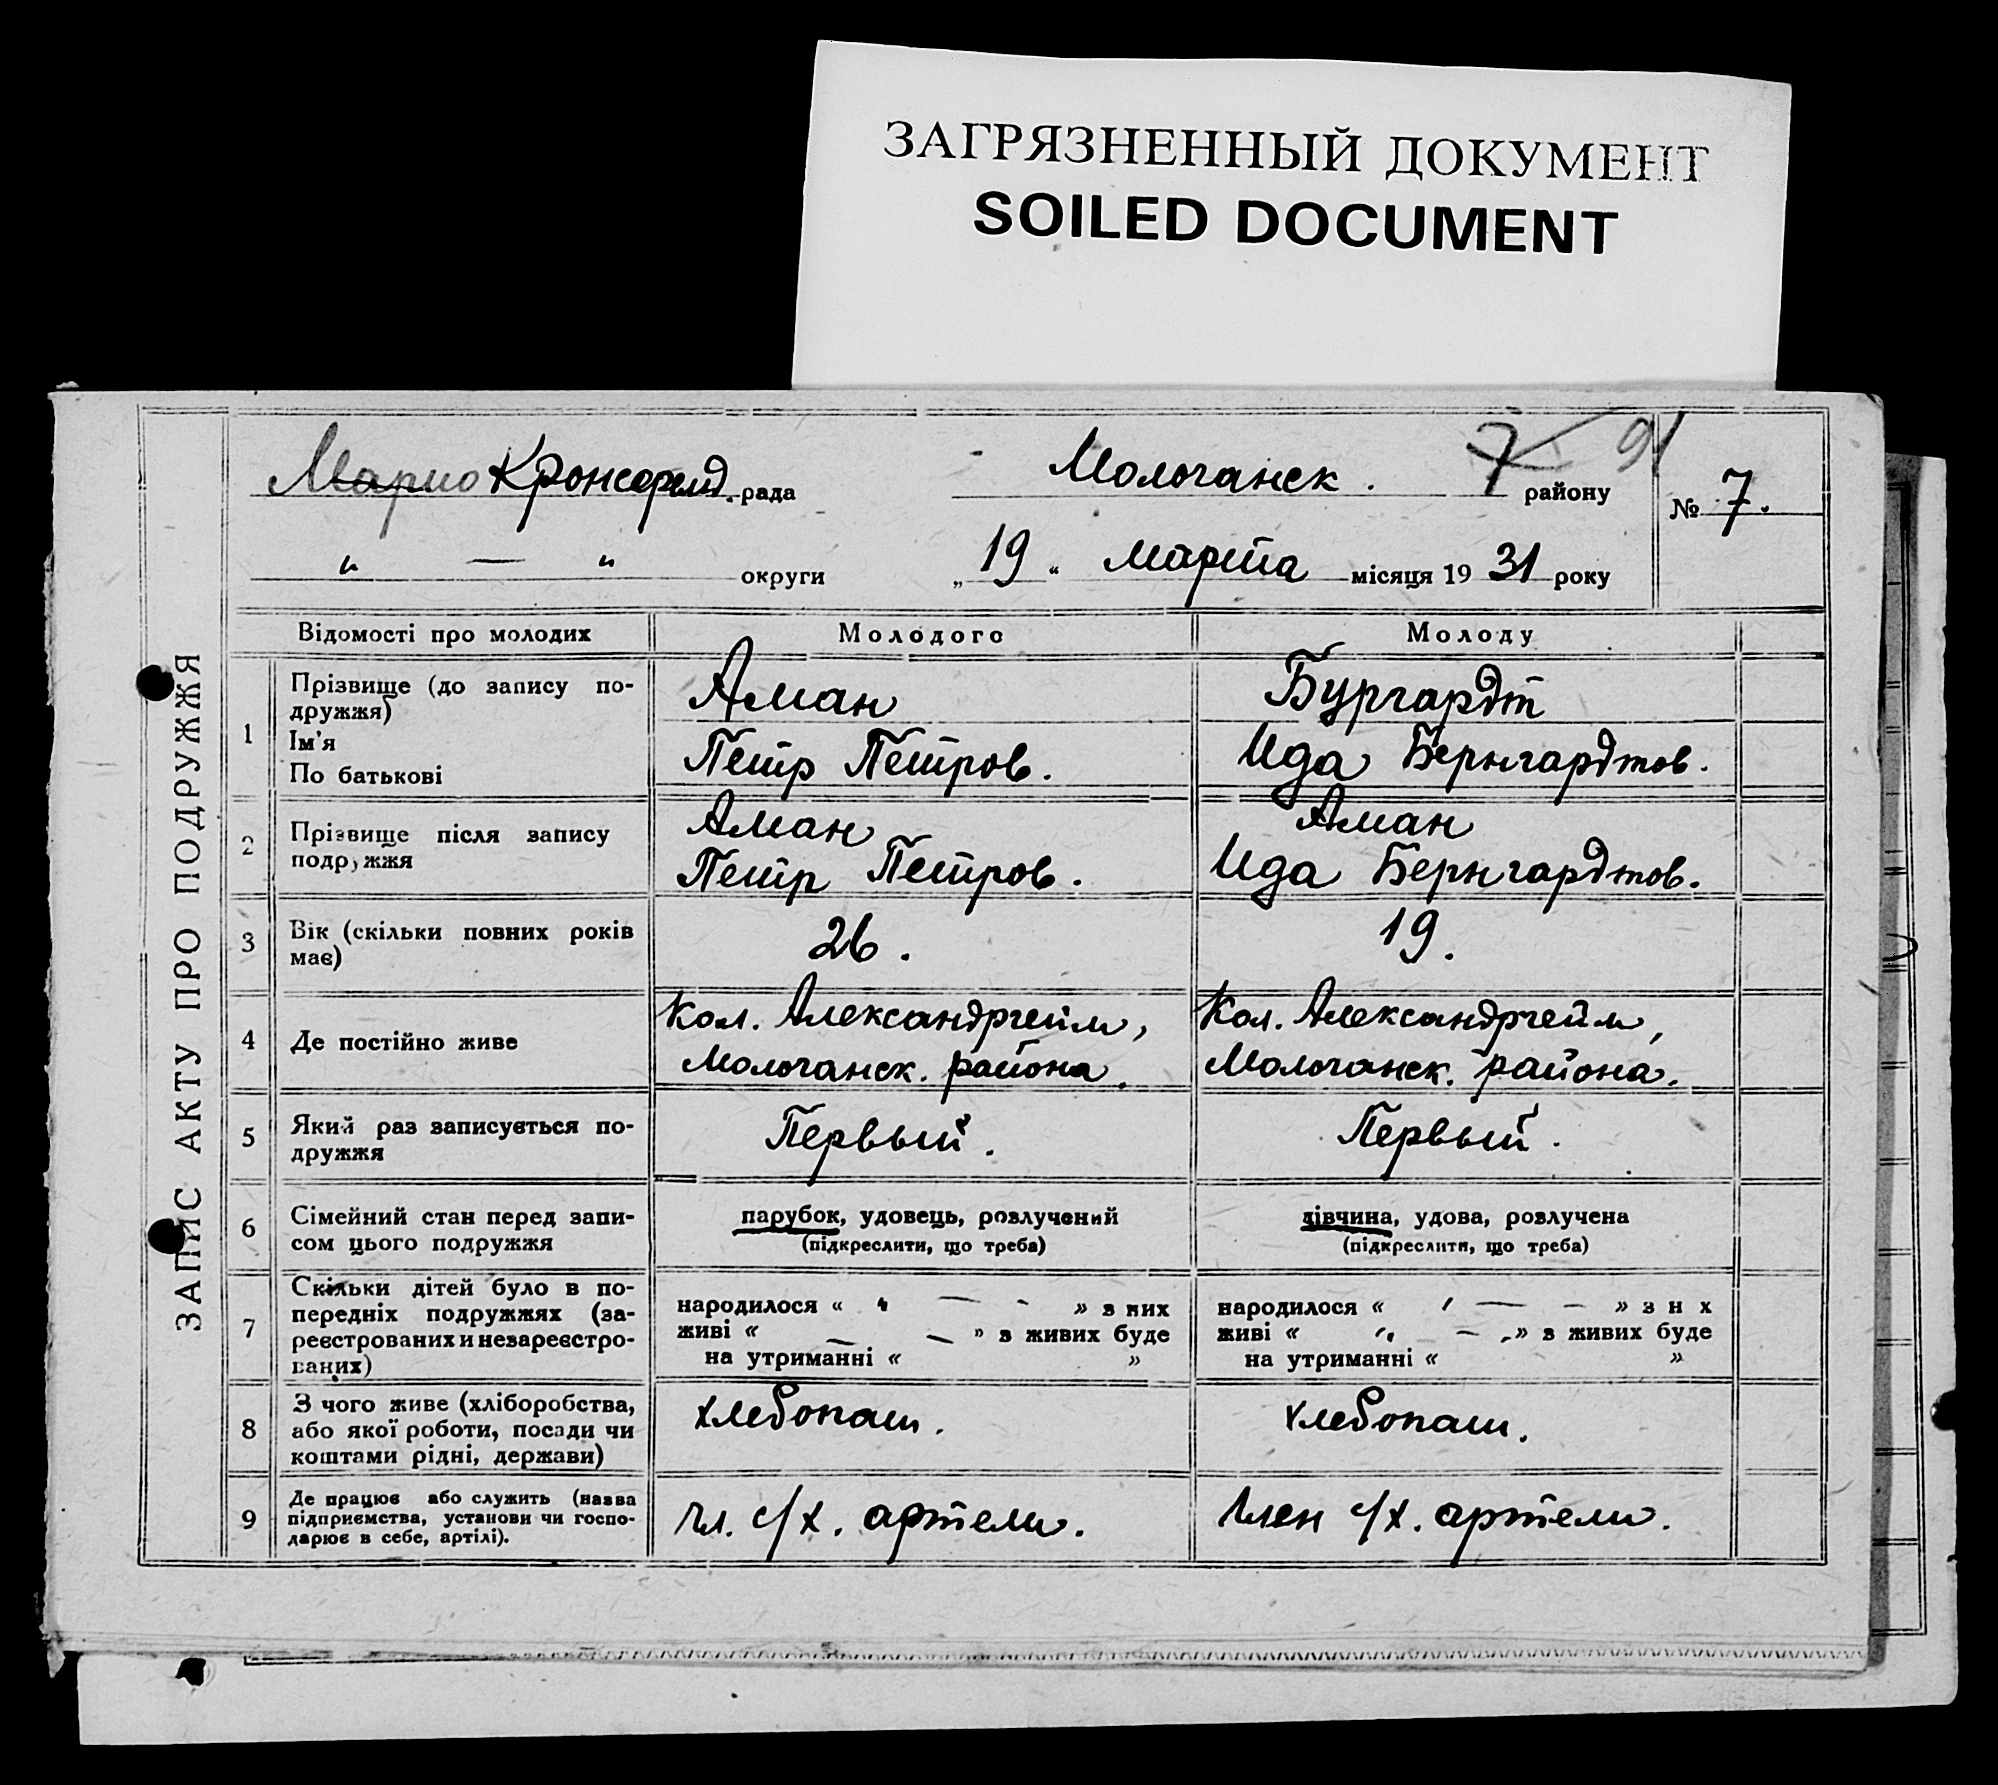 ЗАГРЯЗНЕННЫЙ ДОКУМЕНТ
SOILED DOCUMENT
ЗАПИС АКТУ ПРО ПОДРУЖЖЯ
7 91
Марио Кронсфельд. рада Молочанск. району № 7.
" — " округи „ 19 “ марта місяця 19 31 року
Відомості про молодих Молодого Молоду
1 Прізвище (до запису по-
дружжя)
Ім'я
По батькові
Аман
Петр Петров.
Бургардт
Ида Бернгардтов.
2 Прізвище після запису
подружжя
Аман
Петр Петров.
Аман
Ида Бернгардтов.
3 Вік (скільки повних років
має)
26.
19.
4 Де постійно живе
Кол. Александргейм,
Молочанск. района.
Кол. Александргейм,
Молочанск. района.
5 Який раз записується по-
дружжя
Первый.
Первый.
6 Сімейний стан перед запи-
сом цього подружжя
парубок, удовець, розлучений
(підкреслити, що треба)
дівчина, удова, розлучена
(підкреслити, що треба)
7 Скільки дітей було в по-
передніх подружжях (за-
реєстрованих и незареєстро-
ваних)
народилося « " — - » з них
живі « — — » з живих буде
на утриманні « »
народилося « ' — — » з н х
живі « " — » з живих буде
на утриманні « »
8 З чого живе (хліборобства,
або якої роботи, посади чи
коштами рідні, держави)
хлебопаш.
хлебопаш.
9 Де працює або служить (назва
підприємства, установи чи госпо-
дарює в себе, артілі).
чл. с/х. артели.
член с/х. артели.